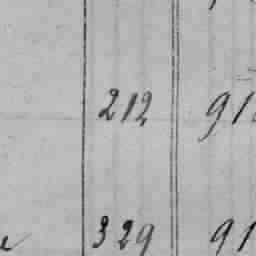 212 91
329 91